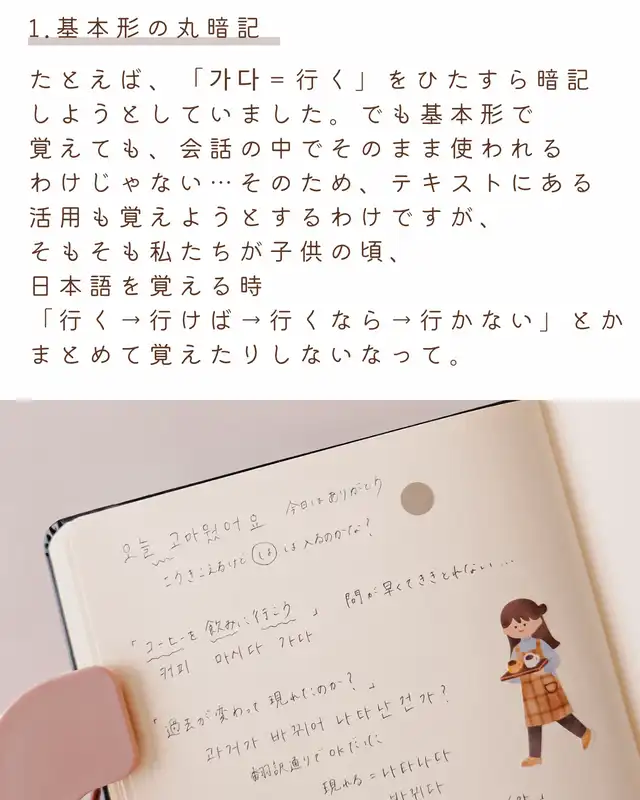 1.基本形の丸暗記
たとえば、「가다=行く」をひたすら暗記
しようとしていました。でも基本形で
覚えても、会話の中でそのまま使われる
わけじゃない…そのため、テキストにある
活用も覚えようとするわけですが、
そもそも私たちが子供の頃、
日本語を覚える時
「行く→行けば→行くなら→行かない」とか
まとめて覚えたりしないなって。
오늘 고마웠어요 今日はありがとう
こうきこえるけど は は入るのかな?
「コーヒーを飲みに行こう」 間が早くてききとれない…
커피 마시다 가다
「過去が変わって現れたのか?」
과거가 바뀌어 나타난 건가?
翻訳通りでOKだけど
現れる=나타나다
바뀌다